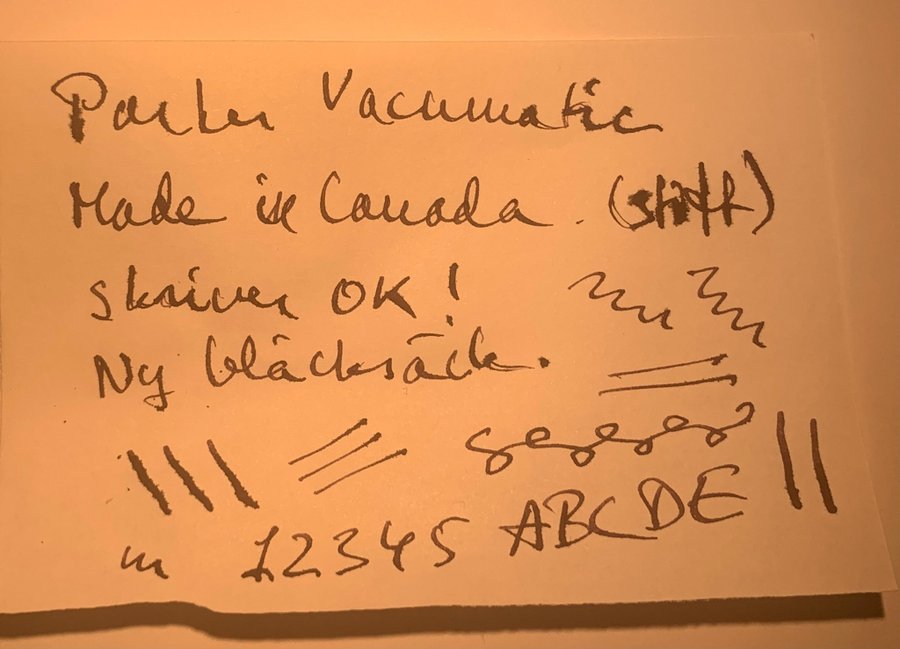 Parker Vacumatic
Made in Canada. (stift)
skriver OK!
Ny bläcksäck.
m 12345 ABCDE